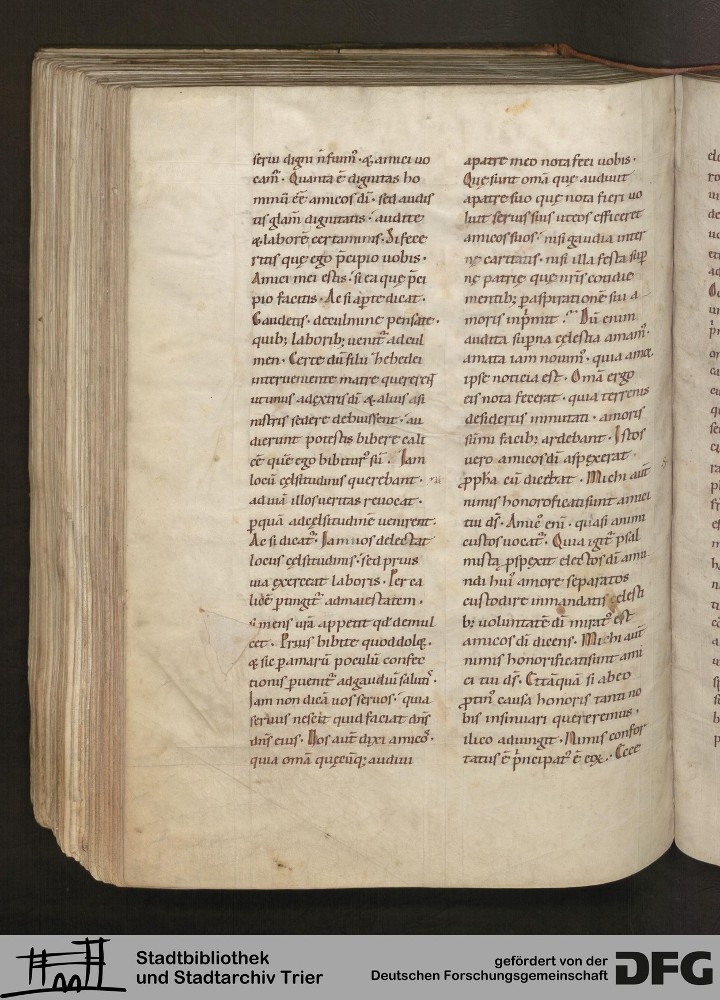 serui digni n̄ sumꝰ · & amici uo
camꝰ · Quanta ē dignitas ho
minū ēē amicos dī · sed audis
tis glam̄ dignitatis · audite
& laborē certaminis · Si fece
ritis que ego p̄cipio uobis ·
Amici mei estis · si ea que p̄ci
pio facitis · Ac si aꝑte dicat ·
Gaudetis · de culmine pensate ·
quibꝫ laboribꝫ uenitꝰ ad cul
men · Certe dū filii zebedei
interueniente matre quererēt
ut unus ad extris dī & alius a si
nistris sedere debuissent · au
dierunt potestis bibere cali
cē quē ego bibiturꝰ sū · Iam
locū celsitudinis querebant ·
ad uiā illos ueritas reuocat ·
ꝑ quā ad celsitudinē uenirent ·
Ac si dicatꝰ · Iam uos delectat
locus celsitudinis · sed prius
uia exerceat laboris · Per ca
licē ꝑtingitꝰ ad maiestatem ·
Si mens urā appetit qd demul
cet · Prius bibite quod dolꝫ ·
& sic ꝑ amarū poculū confec
tionis ꝑuenitꝰ ad gaudiū salutꝰ ·
Iam non dicā uos seruos · quia
seruus nescit quid faciat dn̄s
dn̄s eius · Uos aut̄ dixi amicoſ ·
quia om̄a quecūqꝫ audiui
a patre meo nota feci uobis ·
Que sunt om̄a que audiuit
a patre suo que nota fieri uo
luit seruis suis ut eos efficeret
amicos suos · nisi gaudia inter
ne caritatis · nisi illa festa suꝑ
ne patrie que nr̄is cotidie
mentibꝫ ꝑ aspirationē sui a
moris inp̄mit · Dū enim
audita suꝑna celestia amamꝰ ·
amata iam nouimꝰ · quia amor
ipse noticia est · Om̄a ergo
eis nota fecerat · qui a terrenis
desideriis inmutati · amoris
sūmi facibꝫ ardebant · Istos
uero amicos dī aspexerat
ꝓpha cū dicebat · Michi aut̄
nimis honorificati sunt amici
tui dſ · Amicꝰ enī · quasi animi
custos uocatꝰ · Quia igitꝰ psal
mista ꝓspexit electos dī a mu
ndi huiꝰ amore separatos
custodire in mandatis celesti
bꝫ uoluntatē dī miratꝰ est
amicos dī dicens · Michi aut̄
nimis honorificati sunt ami
ci tui dſ · Et tāquā si ab eo
ꝓtinꝰ causa honoris tanti no
bis insinuari quereremus ·
ilico adiungit · Nimis confor
tatus ē p̄ncipatꝰ ē eoꝝ · Ecce
Stadtbibliothek
und Stadtarchiv Trier
gefördert von der
Deutschen Forschungsgemeinschaft
DFG